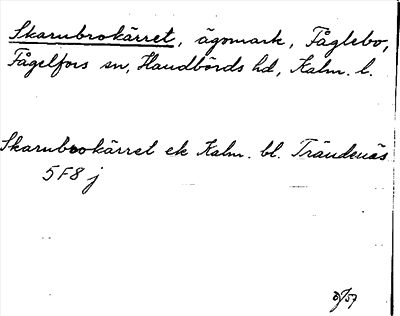 Skarubrokärret, ägomark, Fåglebo,
Fågelfors sn, Handbörds hd, Kalm. l.
Skarubrokärret ek Kalm. bl. Trändenäs
5F8 j